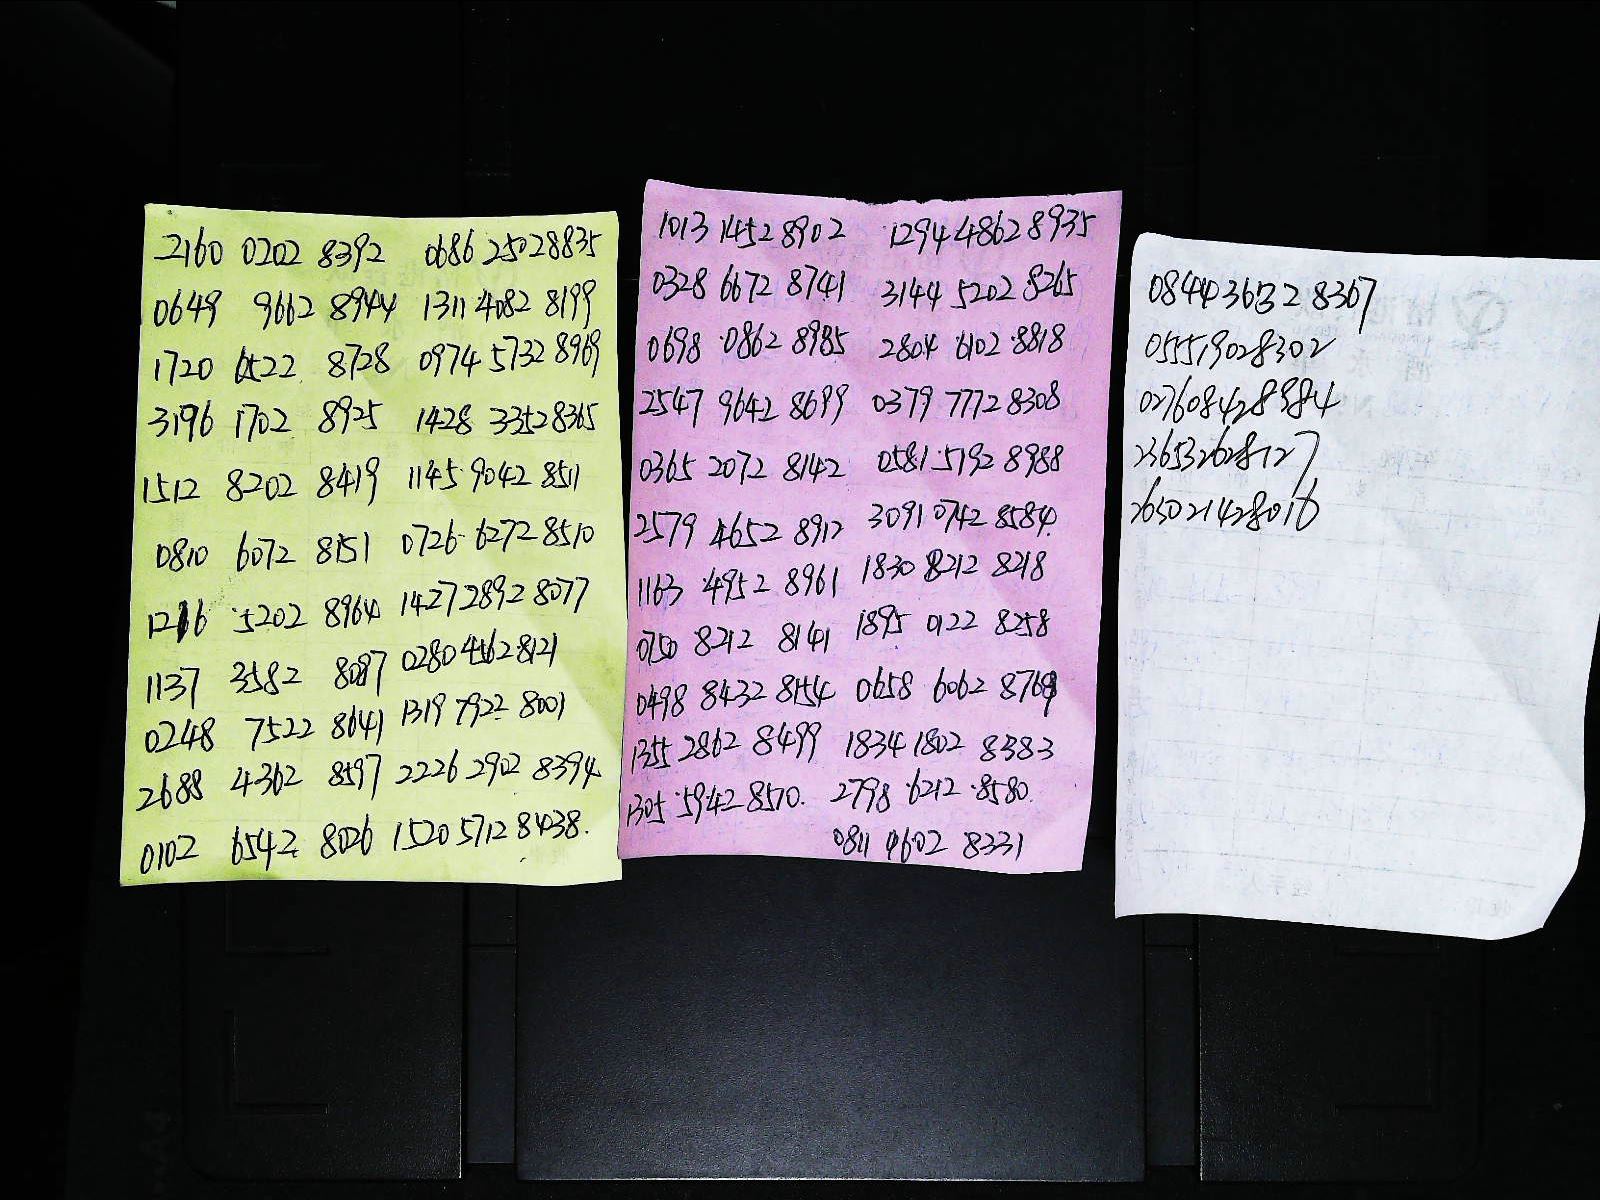 2160 0202 8392 0686 2502 8835
0649 9662 8944 1311 4082 8199
1720 6522 8728 0974 5732 8969
3196 1702 8925 1428 3352 8365
1512 8202 8419 1145 9042 8511
0810 6072 8151 0726 6272 8510
1216 5202 8964 1427 2892 8077
1137 3582 8087 0280 4562 8121
0248 7522 8641 1319 7922 8001
2688 4362 8597 2226 2902 8394
0102 6542 8026 1520 5712 8438.
1013 1452 8902 1294 4862 8935
0328 6672 8741 3144 5202 8265
0698 0862 8985 2804 6102 8818
2547 9642 8699 0379 7772 8308
0365 2072 8142 0581 5192 8988
2579 4652 8912 3091 0742 8584.
1163 4952 8961 1830 8212 8218
0750 8212 8141 1895 0122 8258
0498 8432 8154 0658 6062 8769
1355 2862 8499 1834 1802 8383
1305 5942 8570. 2798 6212 8580.
0811 9602 8331
0844 3652 8367
055519028302
027608428984
236532628127
263021428016